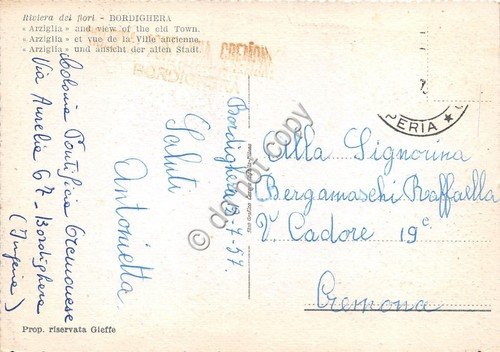 Riviera dei fiori - BORDIGHERA
« Arziglia » and view of the old Town.
« Arziglia » et vue de la Ville ancienne.
« Arziglia » und ansicht der alten Stadt.
CREMON
BORDIGHERA
ERIA ★
Colonia Pontificia Cremonese
Via Aurelia 67 - Bordighera
Bordighera 3-7-57.
Saluti
Antonietta
Alla Signorina
Bergamaschi Raffaella
V. Cadore 19c
Cremona
Prop. riservata Gieffe
do not copy